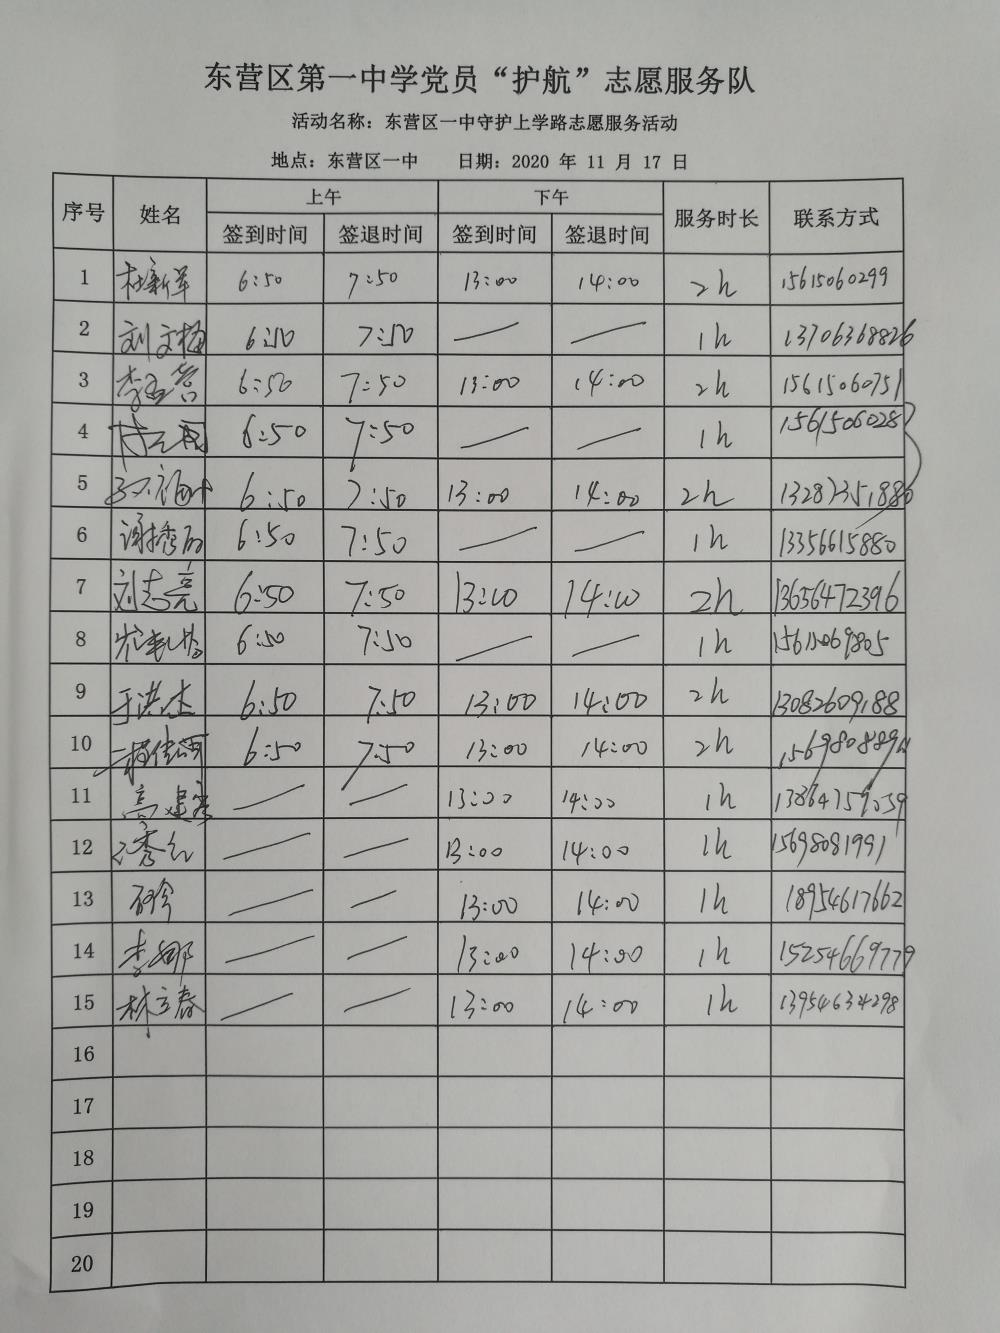 东营区第一中学党员“护航”志愿服务队
活动名称：东营区一中守护上学路志愿服务活动
地点：东营区一中 日期：2020 年 11 月 17 日
序号 姓名 上午 下午 服务时长 联系方式
签到时间 签退时间 签到时间 签退时间
1 杜新军 6:50 7:50 13:00 14:00 2h 15615060299
2 刘文梅 6:50 7:50 — — 1h 13706368826
3 李 6:50 7:50 13:00 14:00 2h 15615060751
4 6:50 7:50 — — 1h 15615060287
5 6:50 7:50 13:00 14:00 2h 13287351880
6 谢秀丽 6:50 7:50 — — 1h 13356615880
7 刘志亮 6:50 7:50 13:00 14:00 2h 13656472396
8 6:50 7:50 — — 1h 15615069805
9 于洪杰 6:50 7:50 13:00 14:00 2h 13082609188
10 6:50 7:50 13:00 14:00 2h
11 高建 — — 13:00 14:00 1h 13864759059
12 — — 13:00 14:00 1h 15698081991
13 — — 13:00 14:00 1h 18954617662
14 李娜 — — 13:00 14:00 1h 15254669779
15 林立春 — — 13:00 14:00 1h 13954634298
16
17
18
19
20